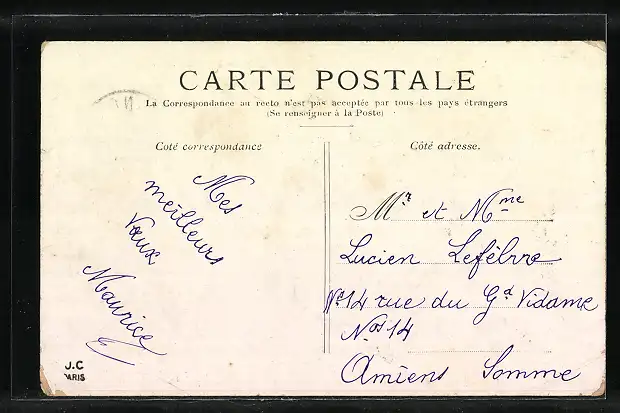 CARTE POSTALE
La Correspondance au recto n'est pas acceptée par tous les pays étrangers
(Se renseigner à la Poste)
Coté correspondance
Mes
meilleurs
Vœux
Maurice
J.C
PARIS
Côté adresse.
Mr et Mme
Lucien Lefèbvre
No 14 rue du Gd Vidame
Nos 14
Amiens Somme